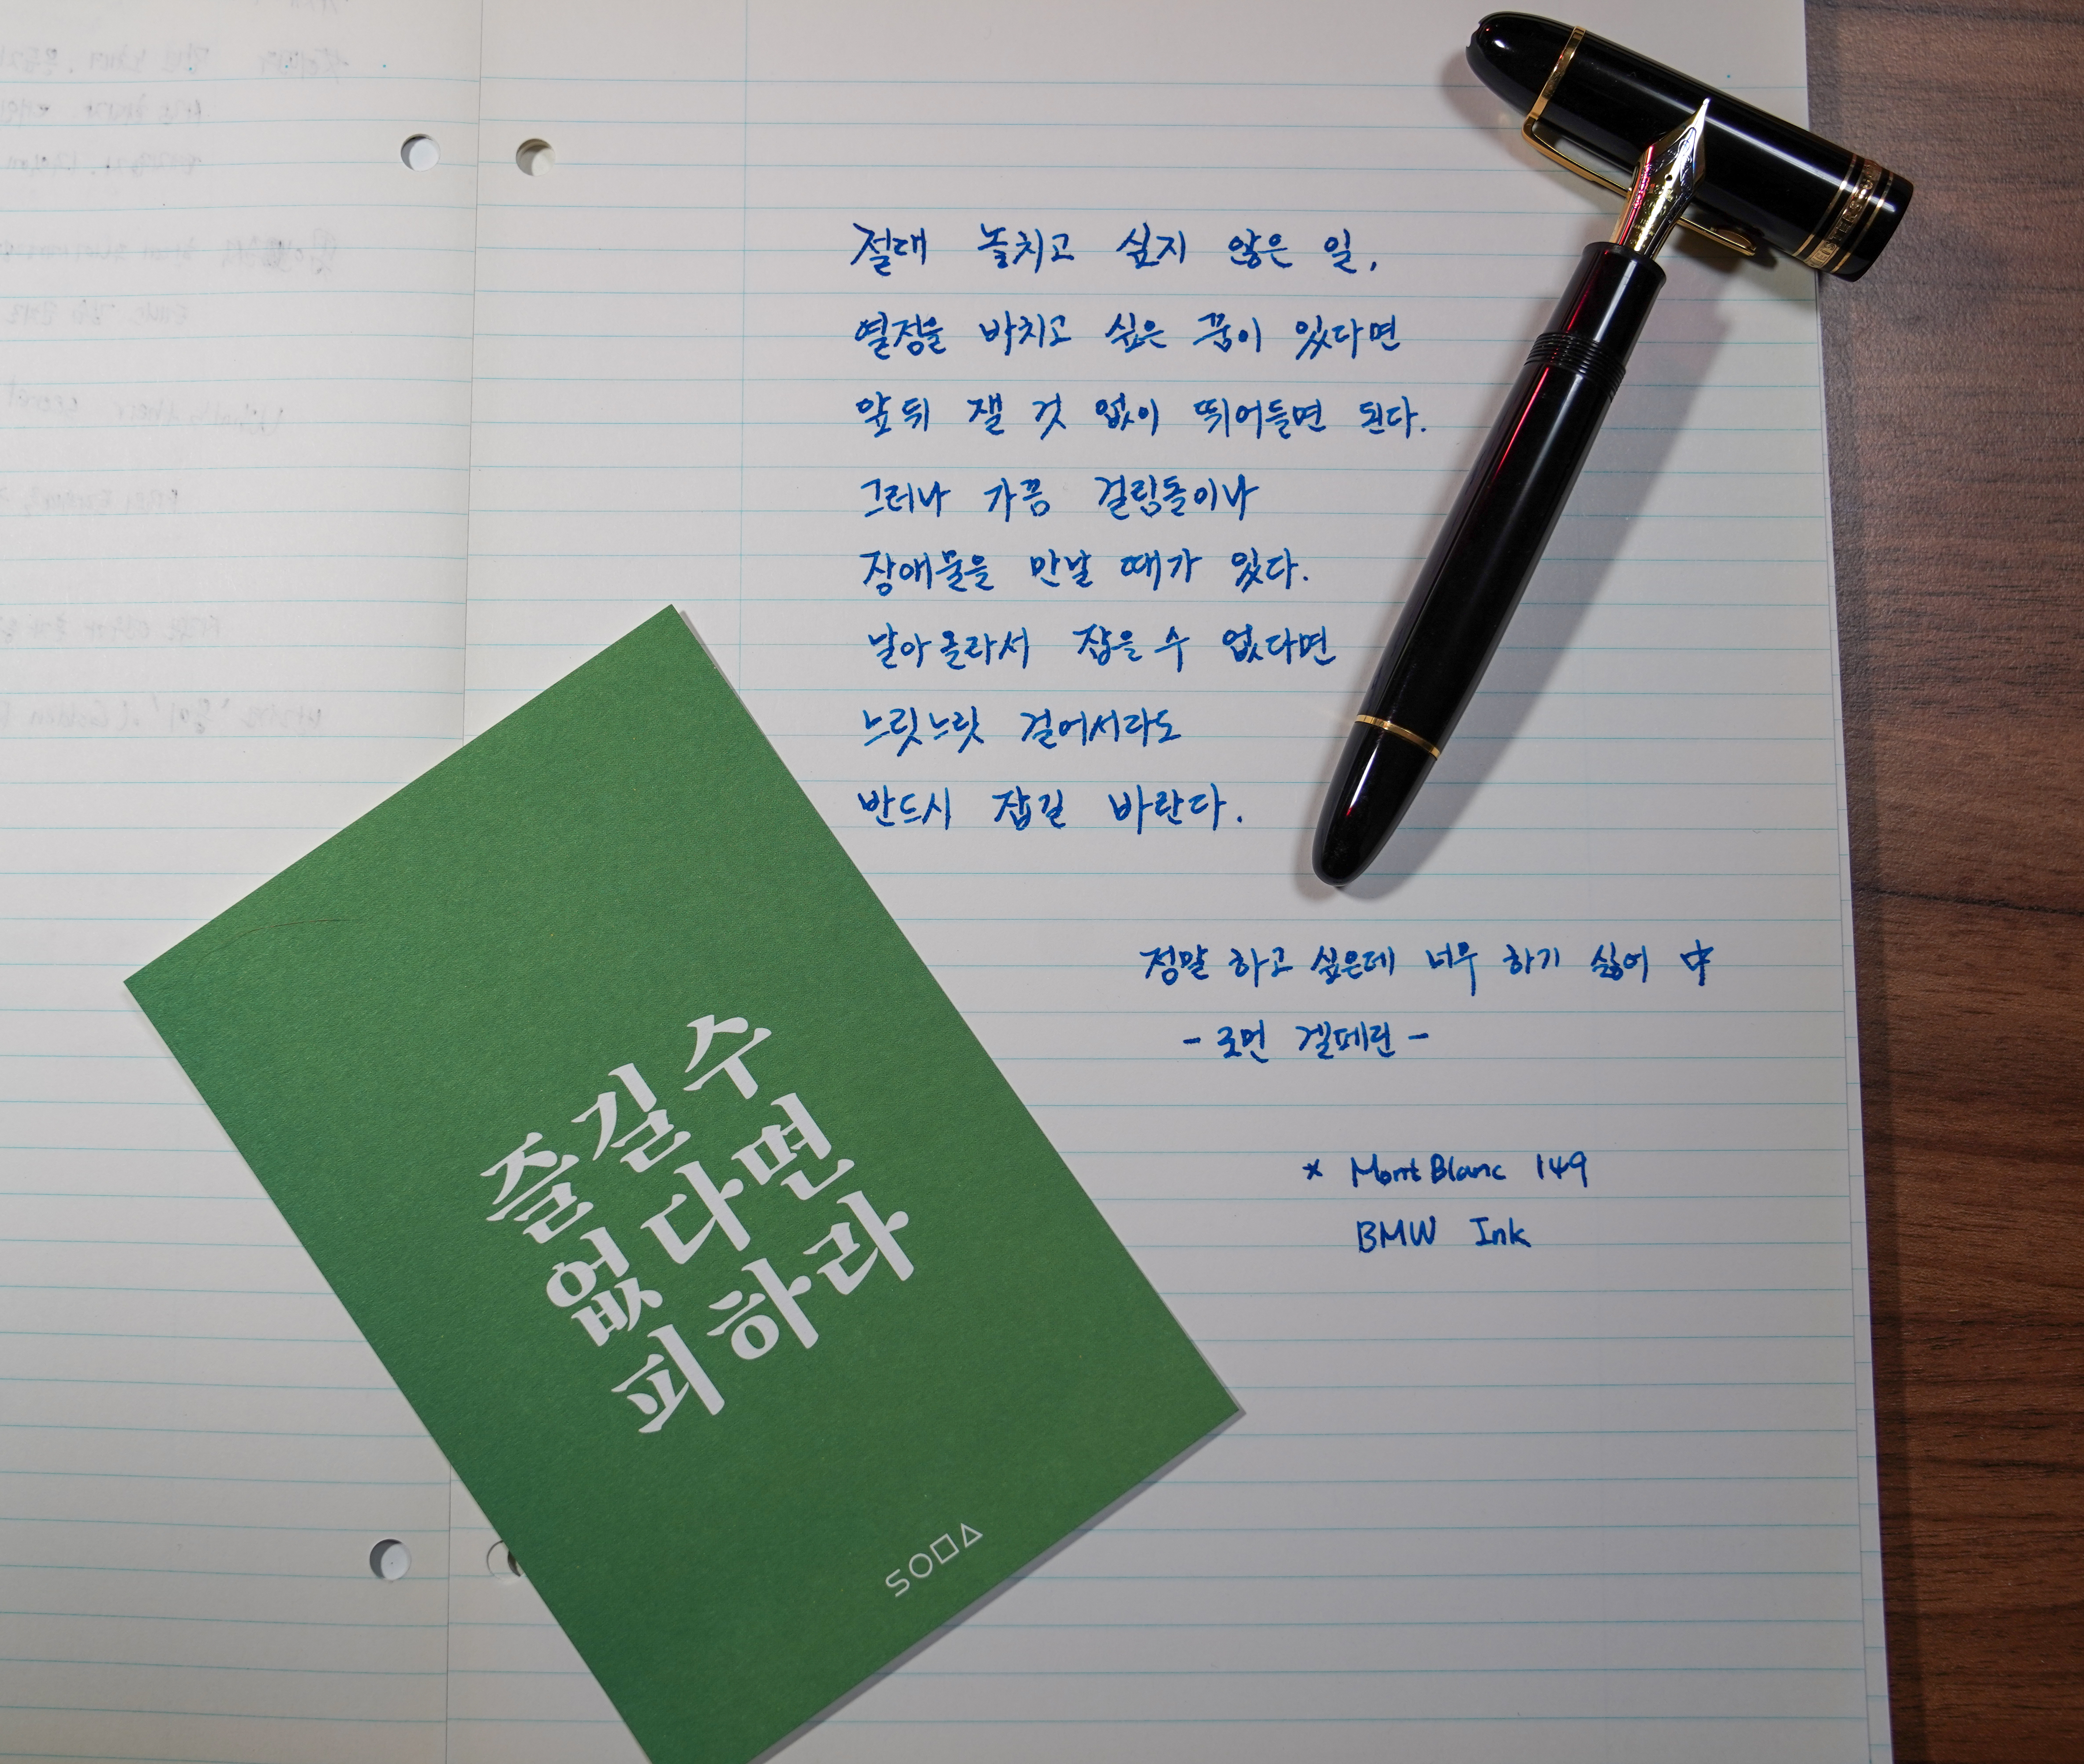 절대 놓치고 싶지 않은 일,
열정을 바치고 싶은 꿈이 있다면
앞뒤 잴 것 없이 뛰어들면 된다.
그러나 가끔 걸림돌이나
장애물을 만날 때가 있다.
날아올라서 잡을 수 없다면
느릿느릿 걸어서라도
반드시 잡길 바란다.
정말 하고 싶은데 너무 하기 싫어 中
- 로먼 겔페린 -
* MontBlanc 149
BMW Ink
즐길 수
없다면
피하라
SODA